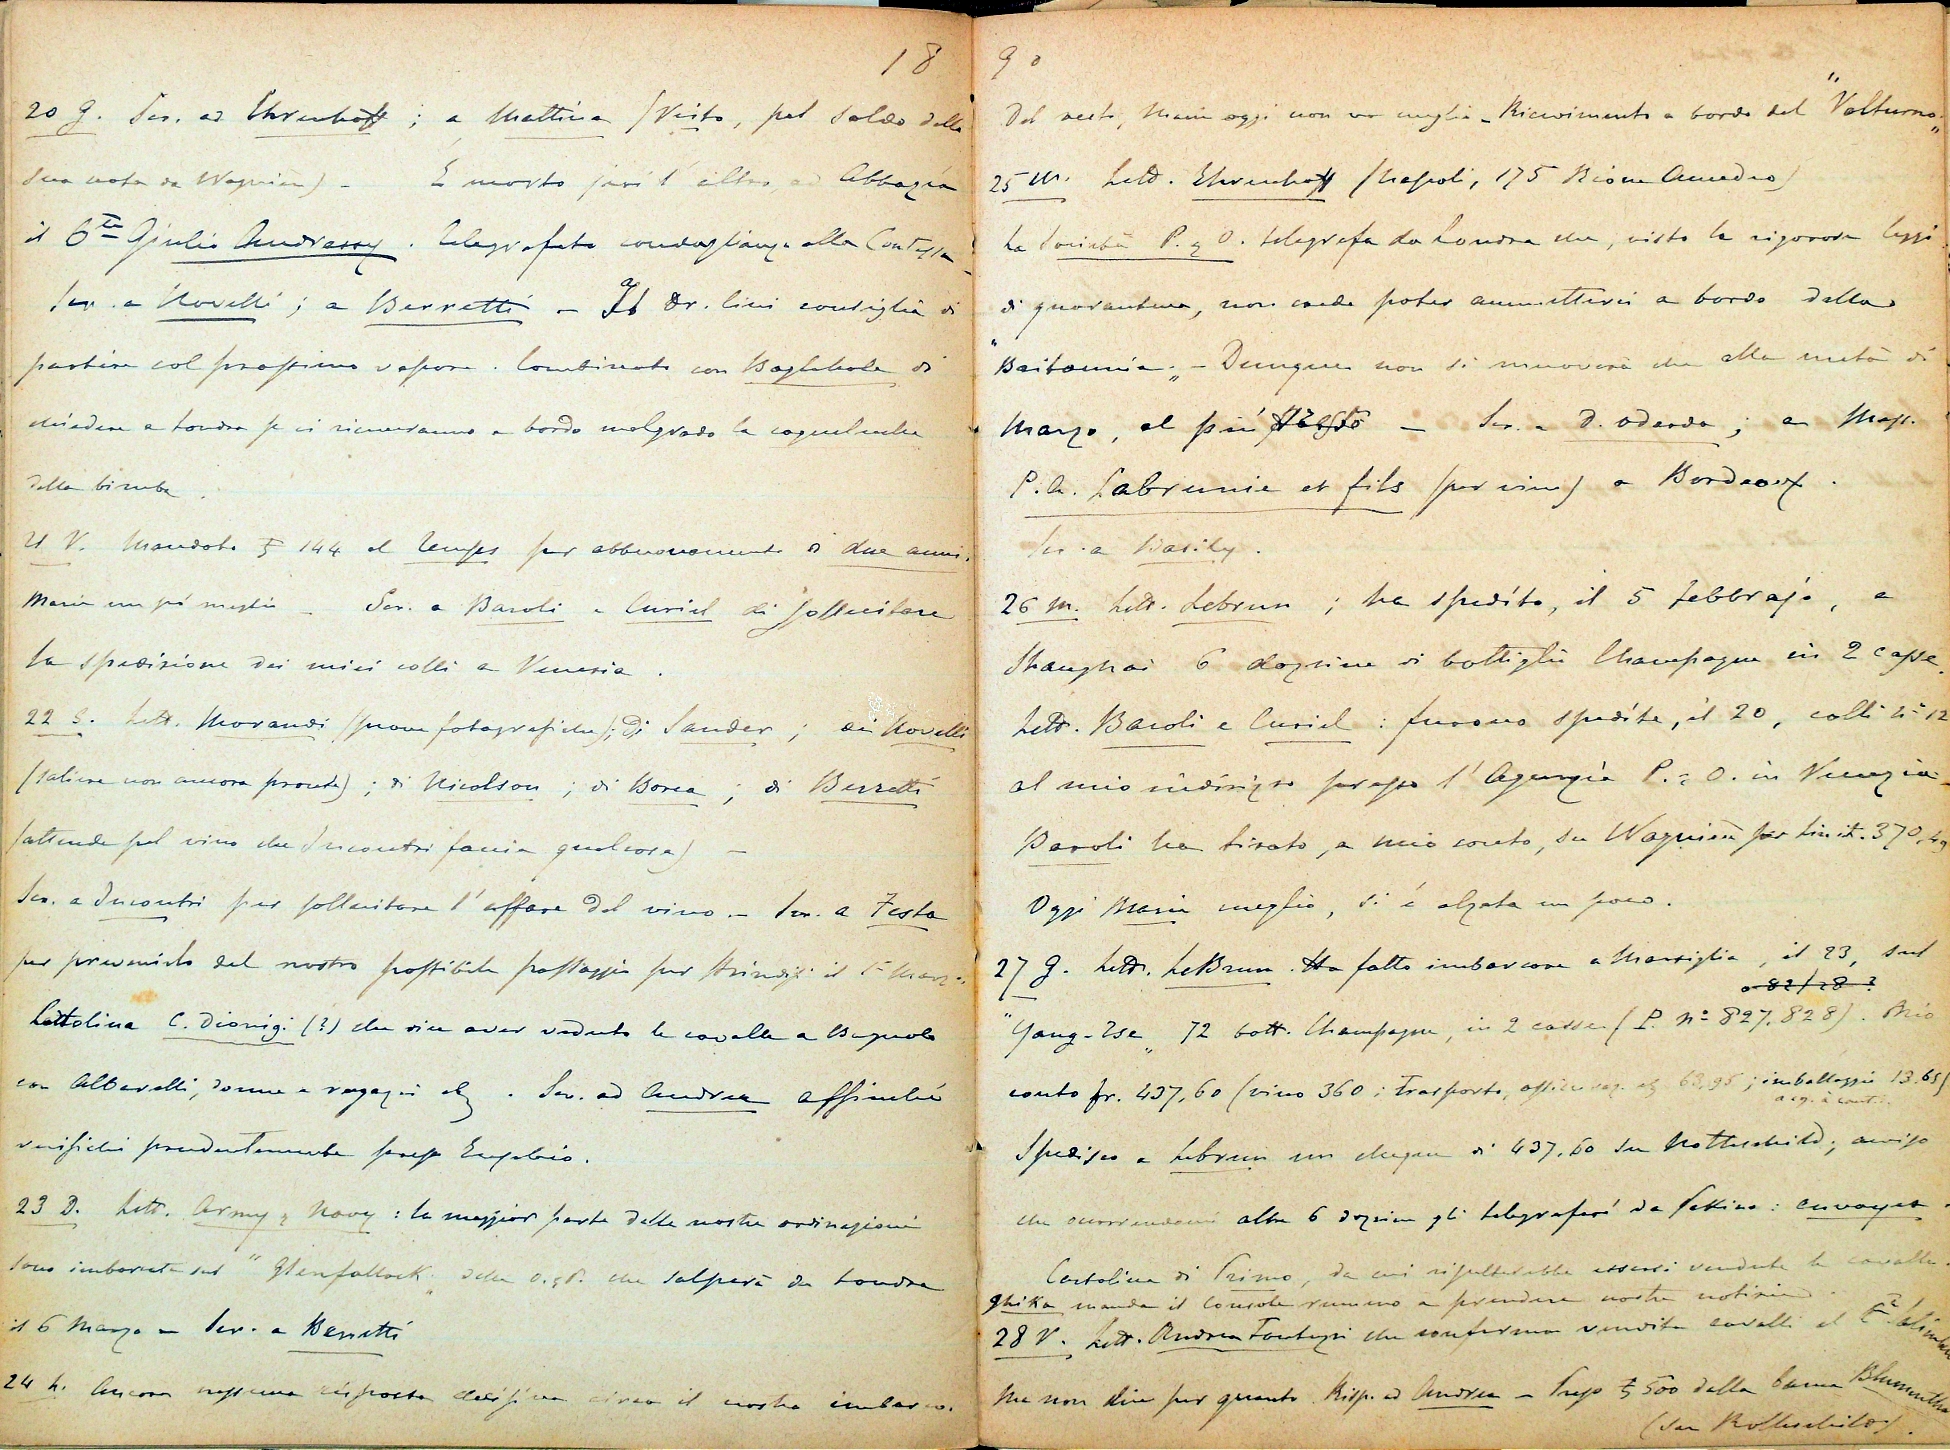 18
20 G. Scr. ad Ehrenhoff ; a Mattina (Visto, pel saldo della
sua nota da Wagnière) – È morto jeri l'altro, ad Abbazia
il Cte Giulio Andrassy. Telegrafato condoglianze alla Contessa –
Scr. a Novelli ; a Berretti – Il Dr. Cini consiglia di
partire col prossimo vapore. Combinato con di
chiedere a Londra se ci riceveranno a bordo malgrado la
della bimba.
21 V. Mandato 144 al Temps per abbuonamento di due anni.
Maria un po' meglio – Scr. a Baroli e Curiel di sollecitare
la spedizione dei miei colli a Venezia.
22 S. Lett. Morandi (prove fotografiche); di Sander ; di Novelli
(saliere non ancora pronte) ; di Nicolson ; di Borea ; di Berretti
(attende pel vino che Incontri faccia qualcosa) –
Scr. a Incontri per sollecitare l'affare del vino. – Scr. a Testa
per prevenirlo del nostro possibile passaggio per Brindisi il 1° Marzo.
Cartolina C. Dionigi (?) che dice aver veduto le cavalle a Bagnolo
con Albarelli, donne e ragazzi. Scr. ad Andrea affinché
verifichi prudentemente presso Eugenio.
23 D. Lett. Army & Navy : la maggior parte delle nostre ordinazioni
sono imbarcate sul "Glenfalloch" della che salperà da Londra
il 6 Marzo – Scr. a Berretti
24 L. Ancora nessuna risposta decisiva circa il nostro imbarco.
90
Del resto, Maria oggi non va meglio – Ricevimento a bordo del "Volturno"
25 M. Lett. Ehrenhoff (Napoli, 175 Rione Amedeo)
La Società P. & O. telegrafa da Londra che, visto le rigorose leggi
di quarantena, non crede poter ammetterci a bordo della
"Britannia". – Dunque non si muoverà che alla metà di
Marzo, al più – Scr. a D. Odeardo ; a Mess.
P. A. Labrunie et fils (per vino) a Bordeaux.
Scr. a Basily.
26 M. Lett. Lebrun ; ha spedito, il 5 febbrajo, a
Shanghai 6 dozzine di bottiglie Champagne in 2 casse.
Lett. Baroli e Curiel : furono spedite, il 20, colli n° 12
al mio indirizzo presso l'Agenzia P. & O. in Venezia –
Baroli ha tirato, a mio conto, su Wagnière per Lire it. 370,49
Oggi Maria meglio, si è alzata un poco.
27 G. Lett. LeBrun. Ha fatto imbarcare a Marsiglia, il 23, sul
"Yang-Tse" 72 bott. Champagne, in 2 casse (P. n° 827, 828). Mio
conto fr. 437,60 (vino 360 ; trasporto, assicuraz. 63,95 ; imballaggio 13.65)
Spedisco a Lebrun un chèque di 437.60 su Rothschild ; avviso
che occorrendomi altre 6 dozzine gli telegraferò da Pekino : envoyez.
Cartolina di Primo, da cui risulterebbe essersi vendute le cavalle.
Ghika manda il console rumeno a prendere nostre notizie.
28 V. Lett. Andrea Fantuzzi che conferma vendita cavalli al
ma non dice per quanto. Risp. ad Andrea – 500 dalla banca Blumenthal
(su Rothschild).